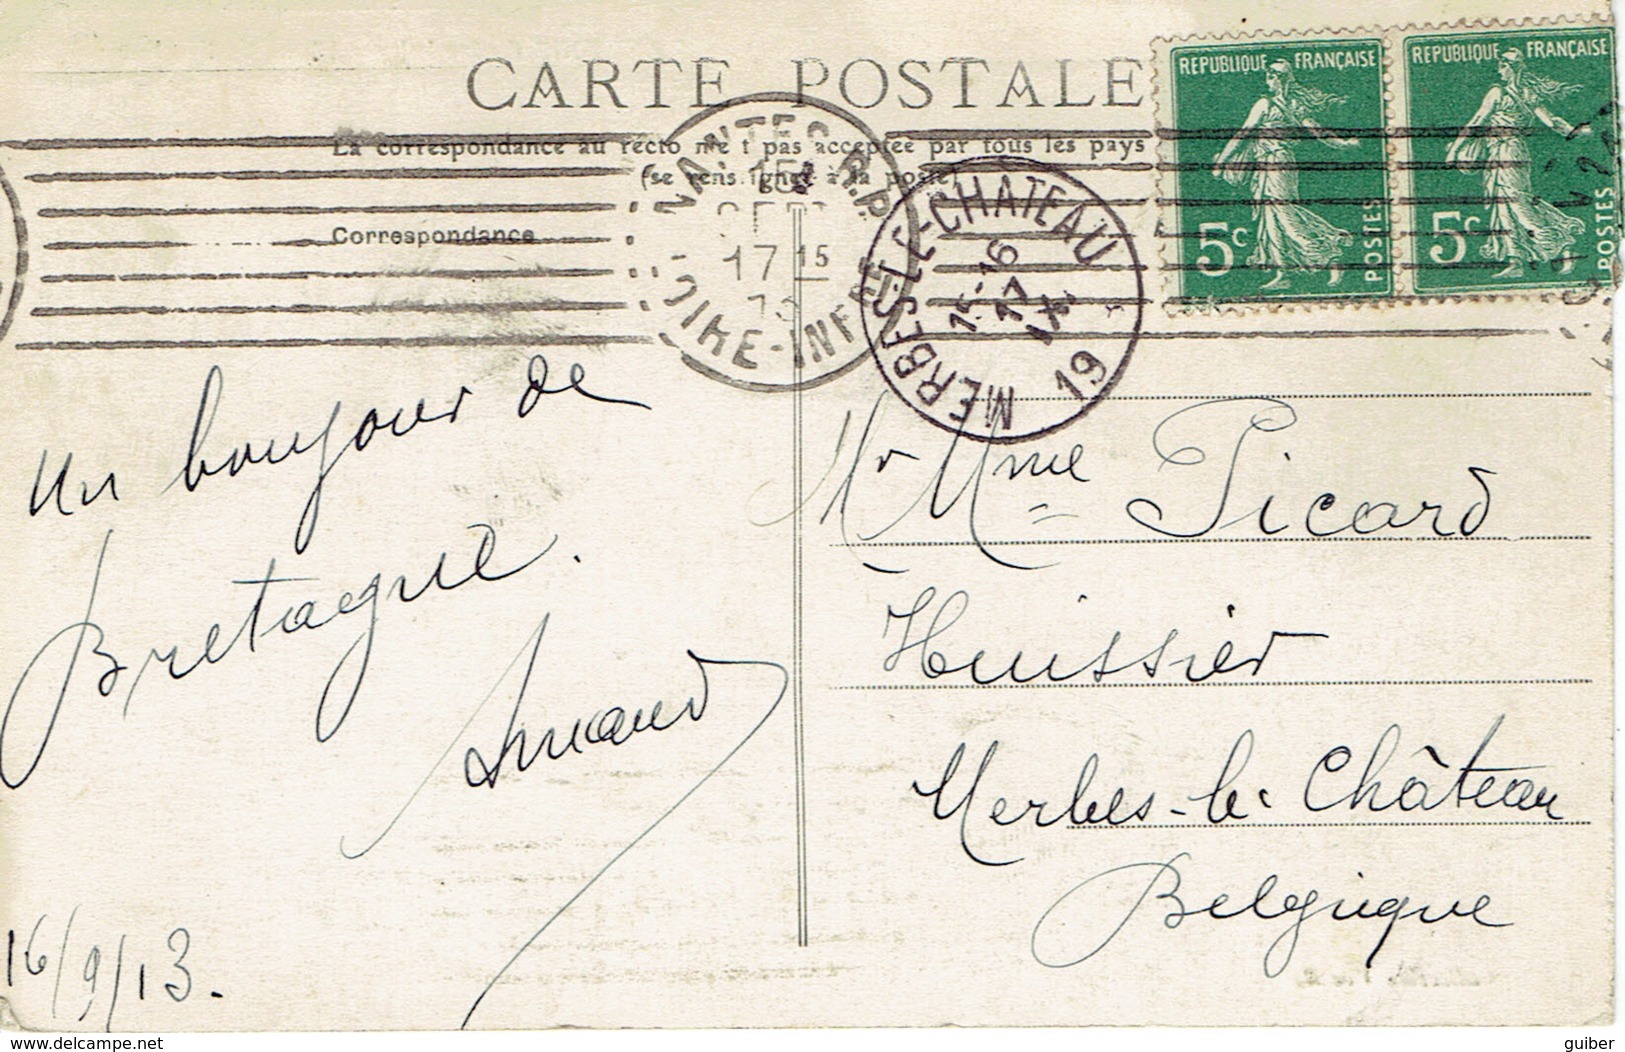 CARTE POSTALE
La correspondance au recto n'est pas acceptée par tous les pays
(se renseigner à la poste)
Correspondance
REPUBLIQUE FRANÇAISE
5c
POSTES
REPUBLIQUE FRANÇAISE
5c
POSTES
NANTES R.P.
17 15
LOIRE-INFRE
MERBES-LE-CHATEAU
15-16
17
IX
19
Un bonjour de
Bretagne.
16/9/13.
Mr Mme Picard
Huissier
Merbes-le-Château
Belgique
www.delcampe.net
guiber